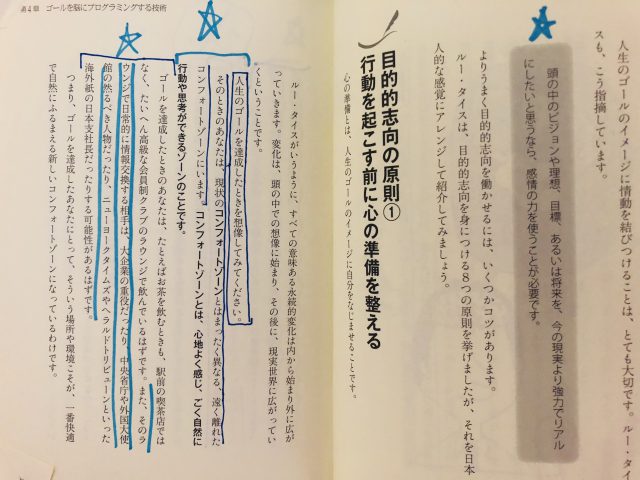 人生のゴールのイメージに情動を結びつけることは、とても大切です。ルー・タイ
スも、こう指摘しています。
頭の中のビジョンや理想、目標、あるいは将来を、今の現実より強力でリアル
にしたいと思うなら、感情の力を使うことが必要です。
よりうまく目的的志向を働かせるには、いくつかコツがあります。
ルー・タイスは、目的的志向を身につける8つの原則を挙げましたが、それを日本
人的な感覚にアレンジして紹介してみましょう。
目的的志向の原則①
行動を起こす前に心の準備を整える
心の準備とは、人生のゴールのイメージに自分をなじませることです。
第4章 ゴールを脳にプログラミングする技術
ルー・タイスがいうように、すべての意味ある永続的変化は内から始まり外に広が
っていきます。変化は、頭の中での想像に始まり、その後に、現実世界に広がってい
くということです。
人生のゴールを達成したときを想像してみてください。
そのときのあなたは、現状のコンフォートゾーンとはまったく異なる、遠く離れた
コンフォートゾーンにいます。コンフォートゾーンとは、心地よく感じ、ごく自然に
行動や思考ができるゾーンのことです。
ゴールを達成したときのあなたは、たとえばお茶を飲むときも、駅前の喫茶店では
なく、たいへん高級な会員制クラブのラウンジで飲んでいるはずです。また、そのラ
ウンジで日常的に情報交換する相手は、大企業の重役だったり、中央省庁や外国大使
館の然るべき人物だったり、ニューヨークタイムズやヘラルドトリビューンといった
海外紙の日本支社長だったりする可能性があるはずです。
つまり、ゴールを達成したあなたにとって、そういう場所や環境こそが、一番快適
で自然にふるまえる新しいコンフォートゾーンになっているわけです。